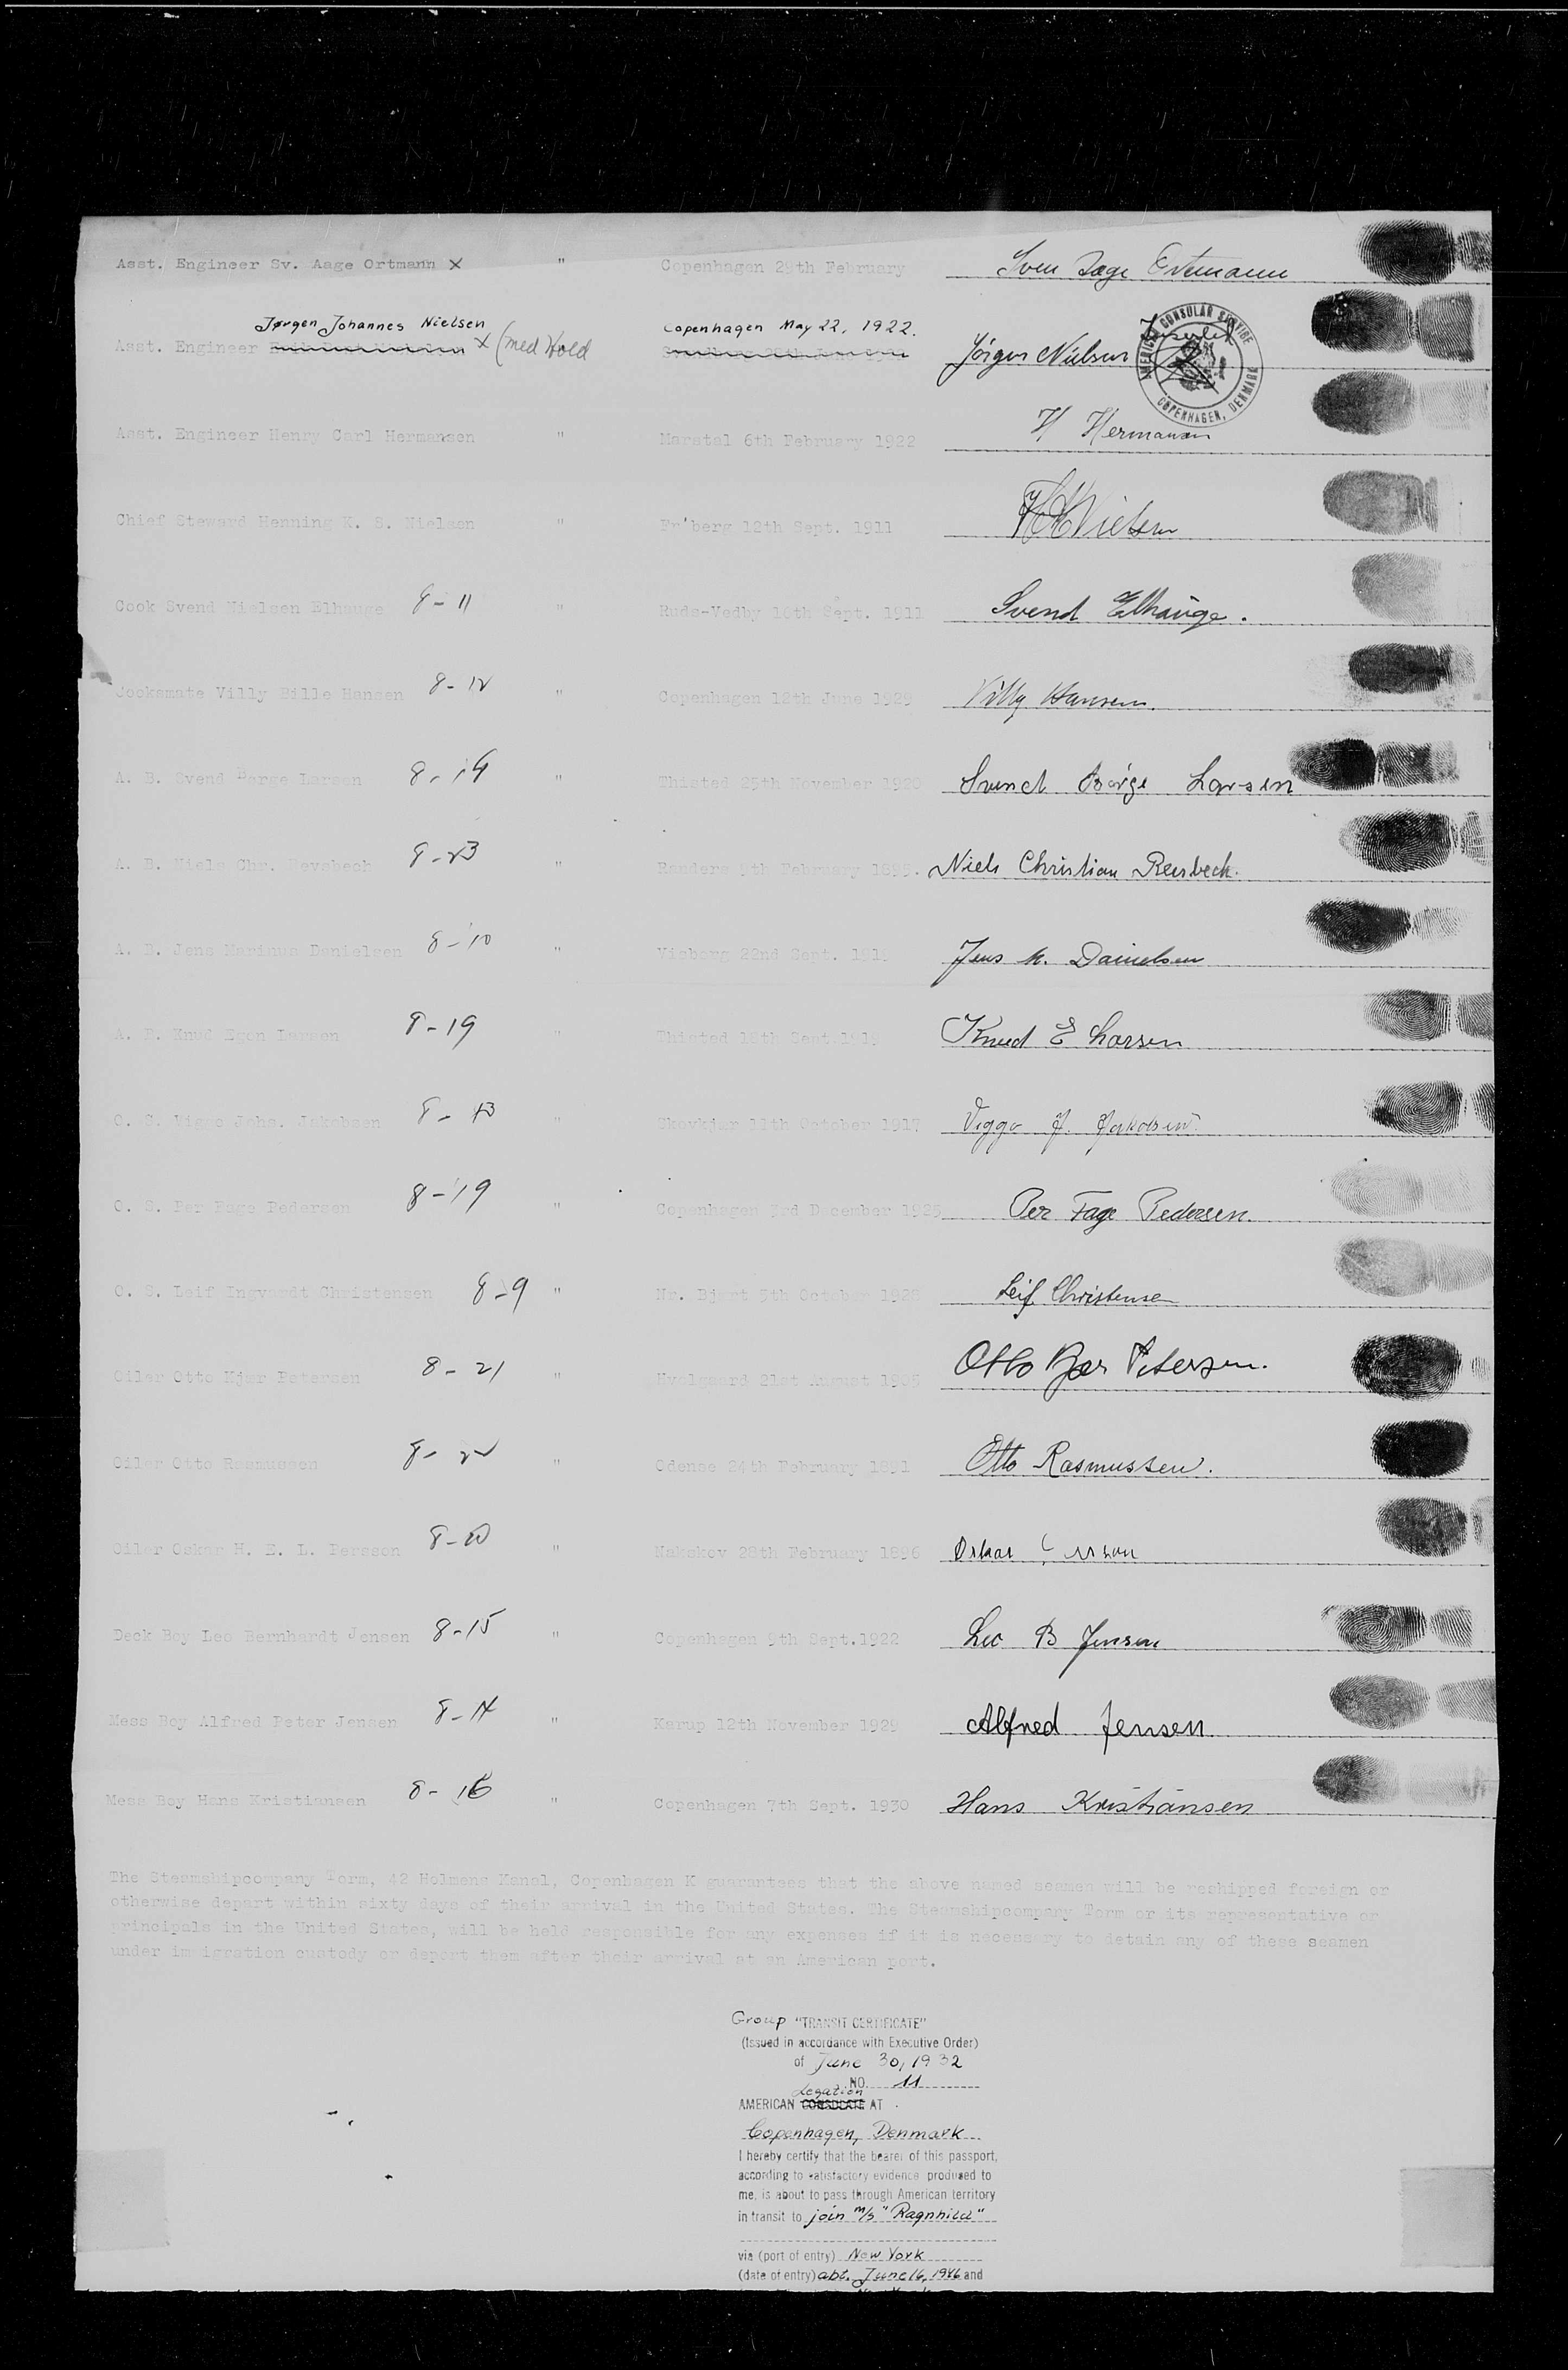 Asst. Engineer Sv. Aage Ortmann x " Copenhagen 29th February Sven Aage Ortmann
Jørgen Johannes Nielsen Copenhagen May 22, 1922.
Asst. Engineer x (med Hold Jörgen Nielsen
AMERICAN CONSULAR SERVICE COPENHAGEN, DENMARK
Asst. Engineer Henry Carl Hermansen " Marstal 6th February 1922 H Hermansen
Chief Steward Henning K. S. Nielsen " Fr'berg 12th Sept. 1911 Nielsen
Cook Svend Nielsen Elhauge 8-11 " Ruds-Vedby Sept. 1911 Svend Elhauge.
Cooksmate Villy Bille Hansen 8-12 " Copenhagen 12th June 1929 Villy Hansen.
A. B. Svend Børge Larsen 8-19 " Thisted 25th November 1920 Svend Börge Larsen
A. B. Niels Chr. Revsbech 8-23 " Randers February Niels Christian Revsbech.
A. B. Jens Marinus Danielsen 8-10 " Visborg 22nd Sept. Jens M. Danielsen
A. B. Knud Egon Larsen 8-19 " Thisted 18th Sept. Knud E Larsen
O. S. Viggo Johs. Jakobsen 8-13 " Skovkjær 11th October 1917 Viggo J. Jakobsen
O. S. Per Fage Pedersen 8-19 " Copenhagen 3rd December Per Fage Pedersen.
O. S. Leif Ingvardt Christensen 8-9 " Nr. Bjert 5th October 1928 Leif Christensen
Oiler Otto Kjær Petersen 8-21 " 21st August 1905 Otto Kjær Petersen.
Oiler Otto Rasmussen 8-22 " Odense 24th February 1891 Otto Rasmussen.
Oiler Oskar H. E. L. Persson 8-20 " Nakskov 28th February 1896 Oskar Persson
Deck Boy Leo Bernhardt Jensen 8-15 " Copenhagen 9th Sept.1922 Leo B Jensen
Mess Boy Alfred Peter Jensen 8-14 " Karup 12th November 1929 Alfred Jensen
Mess Boy Hans Kristiansen 8-16 " Copenhagen 7th Sept. 1930 Hans Kristiansen
The Steamshipcompany Torm, 42 Holmens Kanal, Copenhagen K guarantees that the above named seamen will be reshipped foreign or
otherwise depart within sixty days of their arrival in the United States. The Steamshipcompany Torm or its representative or
principals in the United States, will be held responsible for any expenses if it is necessary to detain any of these seamen
under im igration custody or deport them after their arrival at an American port.
Group "TRANSIT CERTIFICATE"
(Issued in accordance with Executive Order)
of June 30, 1932
NO. 11
Legation
AMERICAN CONSULATE AT
Copenhagen, Denmark
I hereby certify that the bearer of this passport,
according to satisfactory evidence prodused to
me, is about to pass through American territory
in transit to join m/s "Ragnhild"
via (port of entry) New York
(date of entry) abt. June 16, 1946 and